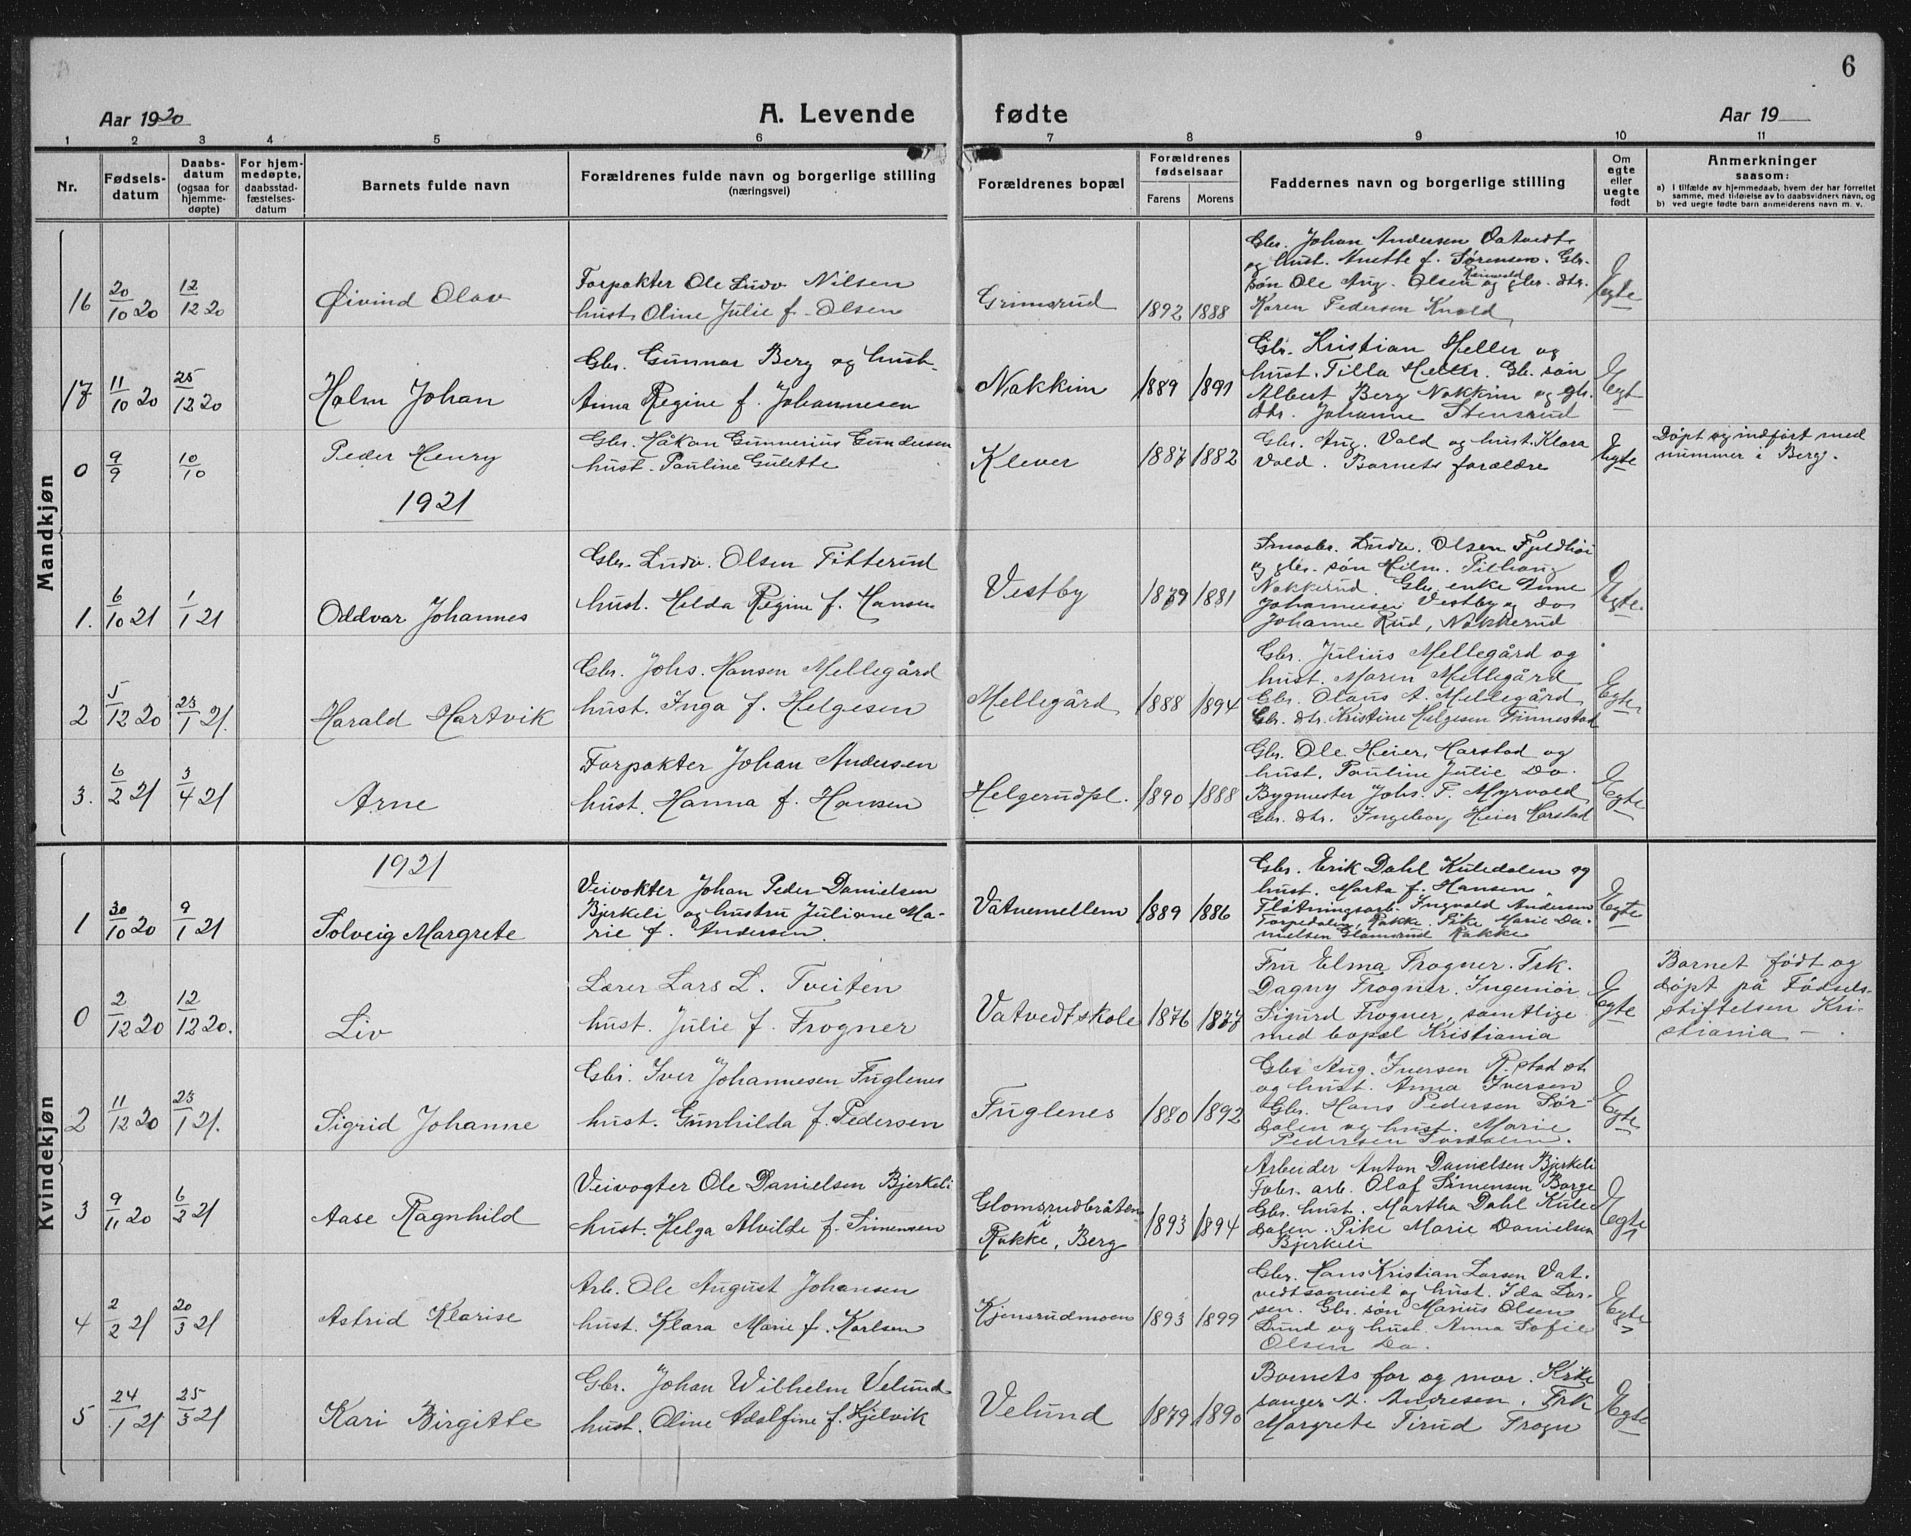 6
Aar 1920
A. Levende fødte
Aar 19
1 2 3 4 5 6 7 8 9 10 11
Nr.
Fødsels-
datum
Daabs-
datum
(ogsaa for
hjemme-
døpte)
For hjem-
medøpte,
daabsstad-
fæstelses-
datum
Barnets fulde navn
Forældrenes fulde navn og borgerlige stilling
(næringsvei)
Forældrenes bopæl
Forældrenes
fødselsaar
Farens Morens
Faddernes navn og borgerlige stilling
Om
egte
eller
uegte
født
Anmerkninger
saasom:
a) i tilfælde av hjemmedaab, hvem der har forrettet
samme, med tilføielse av to daabsvidners navn, og
b) ved uegte fødte barn anmelderens navn m. v.
Mandkjøn
16
20/10 20
12/12 20
Øivind Olav
Forpakter Ole Ludv Nilsen
hust. Oline Julie f. Olsen
Grimsrud
1892 1888
Gbr. Johan Andersen Vatvedt
og hust. Anette f. Sørensen. Gbr.
søn Ole Aug. Olsen og gbr. dtr.
Karen Pedersen Knold
Egte
17
11/10 20
25/12 20
Holm Johan
Gbr. Gunnar Berg og hust.
Anna Regine f. Johannesen
Nakkim
1889 1891
Gbr. Kristian Heller og
hust. Tilla Heller. Gb. søn
Albert Berg Nakkim og gbr.
dtr. Johanne Stensrud
Egte
0
9/9
10/10
Peder Henry
Gbr. Håkon Gunnerius Gundersen
hust. Pauline Gulette
Klever
1887 1882
Gbr. Aug. Vold og hust. Klara
Vold. Barnets forældre
Egte
Døpt og indført med
nummer i Berg.
1921
1.
6/10 21
1/1 21
Oddvar Johannes
Gbr. Ludv. Olsen Titterud
hust. Helda Regine f. Hansen
Vestby
1879 1881
Smaabr. Ludv. Olsen Fjeldhøi
og gbr. søn Hilm. Pilhaug
Nakkerud. Gbr. enke Dine
Johannesen Vestby og do
Johanne Rud, Nakkerud
Egte.
2
5/12 20
23/1 21.
Harald Hartvik
Gbr. Johs. Hansen Mellegård
hust. Inga f. Helgesen
Mellegård
1888 1894
Gbr. Julius Mellegård og
hust. Maren Mellegård
Gbr. Olaus A. Mellegård
Gbr. dtr. Kristine Helgesen Finnestad
Egte
3.
6/2 21
3/4 21
Arne
Forpakter Johan Andersen
hust. Hanna f. Hansen
Helgerudpl.
1890 1888
Gbr. Ole Heier Harstad og
hust. Pauline Julie Do.
Bygmester Johs. F. Myrvold
Gbr. dtr. Ingeborg Heier Harstad
Egte
Kvindekjøn
1921
1
30/10 20
9/1 21
Solveig Margrete
Veivokter Johan Peder Danielsen
Bjerkeli og hustru Juliane Ma-
rie f. Andersen.
Vatnemellem
1889 1886
Gbr. Erik Dahl Kuledalen og
hust. Marta f. Hansen.
Fløtningsarb. Ingvald Andersen
Torpedalen, Rakke. Pike Marie Da-
nielsen Glomsrud Rakke
Egte
0
2/12 20
12/12 20.
Liv
Lærer Lars L. Tveiten
hust. Julie f. Frogner
Vatvedt skole
1876 1877
Fru Elma Frogner. Frk.
Dagny Frogner. Ingeniør
Sigurd Frogner, samtlige
med bopæl Kristiania
Egte
Barnet født og
døpt på Fødsels-
stiftelsen Kri-
stiania.
2
11/12 20
23/1 21.
Sigrid Johanne
Gbr. Iver Johannesen Fuglenes
hust. Gunhilda f. Pedersen
Fuglenes
1880 1892
Gbr. Aug. Iversen
og hust. Anna Iversen
Gbr. Hans Pedersen Sør
dalen og hust. Marie
Pedersen Sørdalen.
Egte
3
9/11 20
6/3 21
Aase Ragnhild
Veivogter Ole Danielsen Bjerkeli
hust. Helga Alvilde f. Simensen
Glomsrudbråten
i
Rakke, Berg
1893 1894
Arbeider Anton Danielsen Bjerkeli
Fabr. arb. Olaf Simensen Borge
Gbr. hust. Martha Dahl Kule
dalen. Pike Marie Danielsen
Bjerkeli
Egte
4
2/2 21
20/3 21
Astrid Klarise
Arb. Ole August Johansen
hust. Klara Marie f. Karlsen
Kjensrudmoen
1893 1899
Gbr. Hans Kristian Larsen Vat-
vedtsameiet og hust. Ida Lar-
sen. Gbr. søn Marius Olsen
Lund og hust. Anna Sofie
Olsen Do.
Egte
5
24/1 21
25/3 21
Kari Birgitte
Gbr. Johan Wilhelm Velund
hust. Oline Adolfine f. Kjelvik
Velund
1879 1890
Barnets far og mor. Kirke
sanger A. Andresen. Frk
Margrete Tirud Trogn
Egte